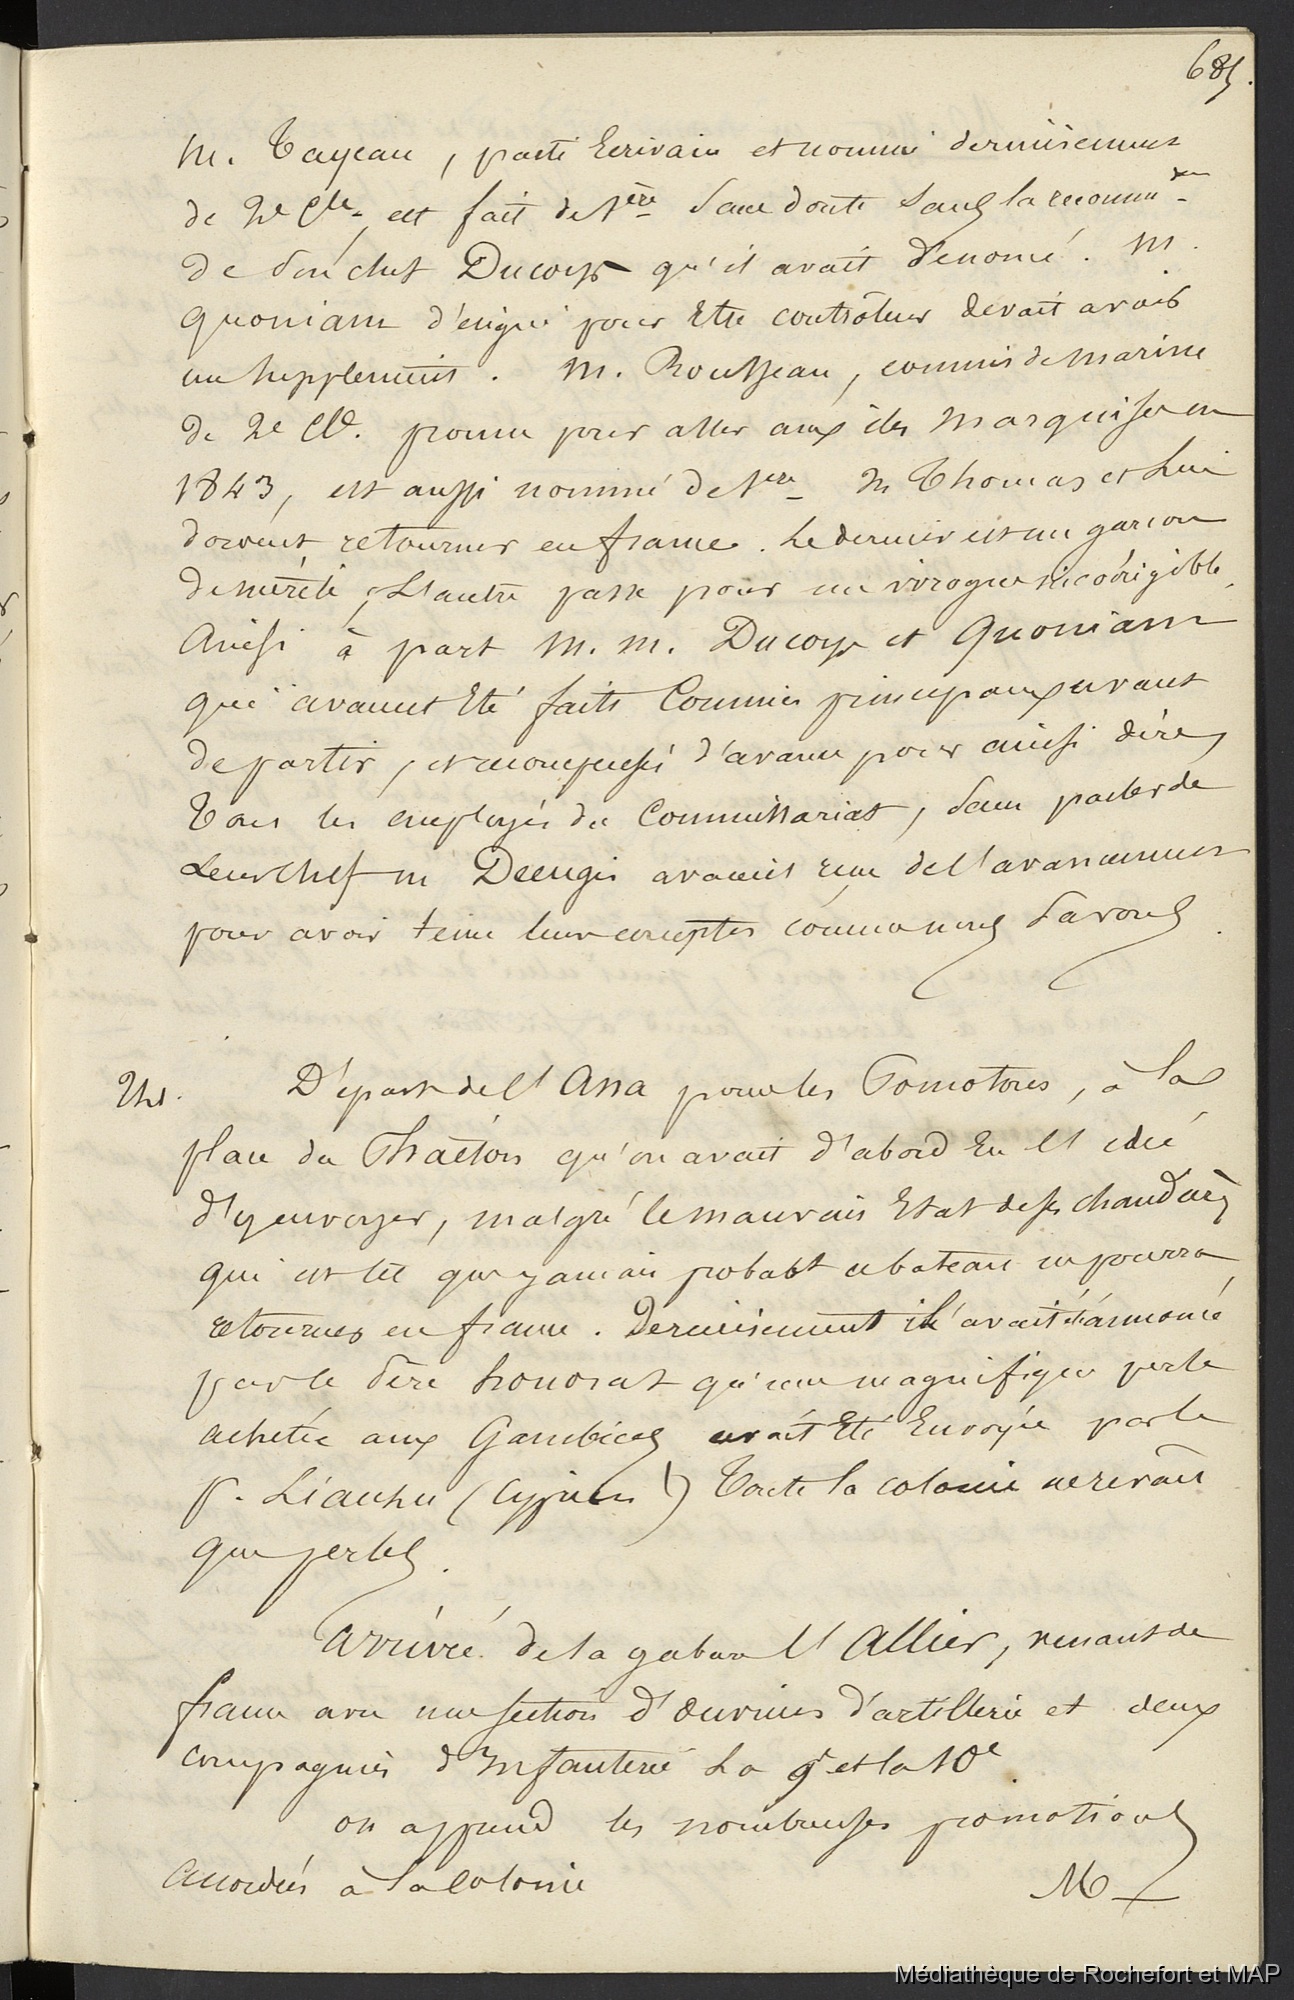 685.
M. Tayeau, parti Ecrivain et nommé dernièrement
de 2e Cle. est fait de 1ère Sans doute sans la recomm on
de son chef Ducorps qu'il avait dénoncé. M.
Quoniam désigné pour Etre contrôleur devait avoir
un supplément. M. Rousseau, commis de marine
de 2e Cl. promu pour aller aux iles Marquises en
1843, est aussi nommé de 1ere M Thomas et Lui
doivent retourner en france. Le dernier est un garcon
de mérite, L'autre passe pour un ivrogne incorrigible.
Ainsi à part M. M. Ducorps et Quoniam
qui avaient Eté faits Commis principaux avant
de partir, et récompensés d'avance pour ainsi dire,
Tous les employés du Commissariat, sans parler de
Leur chef m avaient reçu de l'avancement
pour avoir tenu leurs comptes comme nous savons.
21. Départ de l'Ana pour les Pomotous, à la
place du Phaéton qu'on avait d'abord Eu l'idée
d'y envoyer, malgré le mauvais Etat de ses chaudières
qui est tel que jamais probabt ce bateau ne pourra
retourner en france. Dernièrement il avait été annoncé
par le Père honorat qu'une magnifique perle
achetée aux Gambiers avait Eté Envoyée par le
P. Liausu (Cyprien !) Toute la colonie ne rêvait
que perles.
Arrivée de la gabare l'Allier, venant de
france avec une section d'ouvriers d'artillerie et deux
compagnies d'Infanterie La 9e et la 10e
on apprend les nombreuses promotions
accordées à la colonie
Médiathèque de Rochefort et MAP